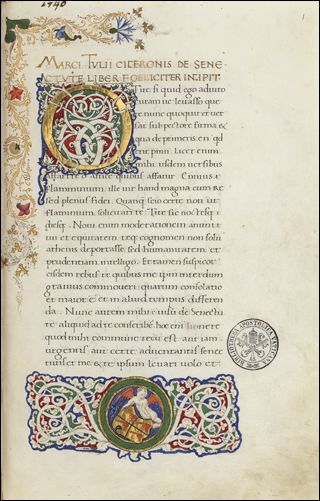 2740
1
MARCI TULII CICERONIS DE SENE
CTVTE LIBER FOELICITER INCIPIT
O Tite si quid ego adiuto
curam ue leuasso que
nunc coquit et uer
sat sub pectore
qua deprimeris en qd
erit pmii. Licet enim
mihi uersibus
affatur
flamminum. Ille uir haud magna cum Re
sed plenus fidei. Quanq scio certe non ut
flamminum. sollicitari te Tite sic noctesq
diesq. Noui enim moderationem animi
tui et equitatem. teq cognomen non solu
athenis deportasse. sed humanitatem et
prudentiam intelligo. Et tamen suspicor
eisdem rebus te quibus me ipm interdum
grauius commoueri. quarum consolatio
et maior est et in aliud tempus differen
da. Nunc autem mihi uisu est de Senectu
te aliquid ad te conscribe. hoc eni honere
quod mihi commune tecu est. aut iam
urgentis aut certe aduentantis senec
tutis et me ipsum leuari uolo et
BIBLIOTHECA APOSTOLICA VATICANA